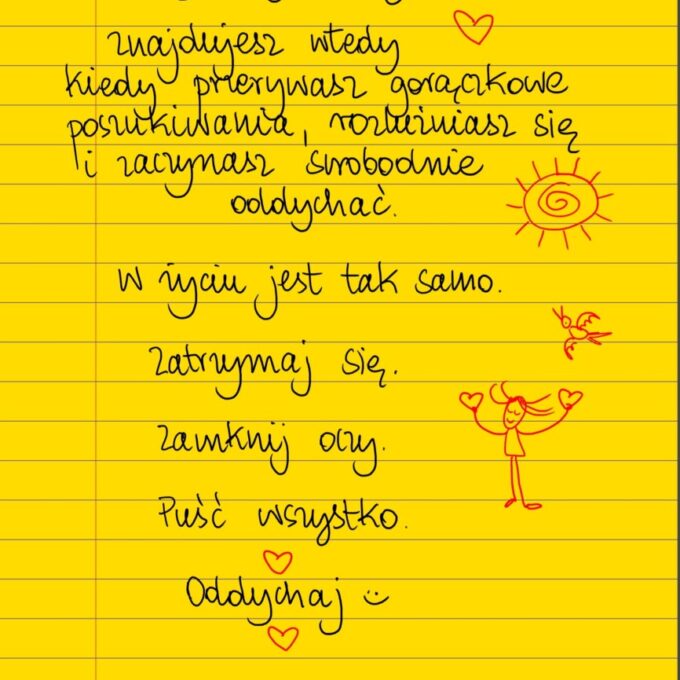 znajdujesz wtedy
kiedy przerywasz gorączkowe
poszukiwania, rozluźniasz się
i zaczynasz swobodnie
oddychać.
W życiu jest tak samo.
Zatrzymaj się.
Zamknij oczy.
Puść wszystko.
Oddychaj